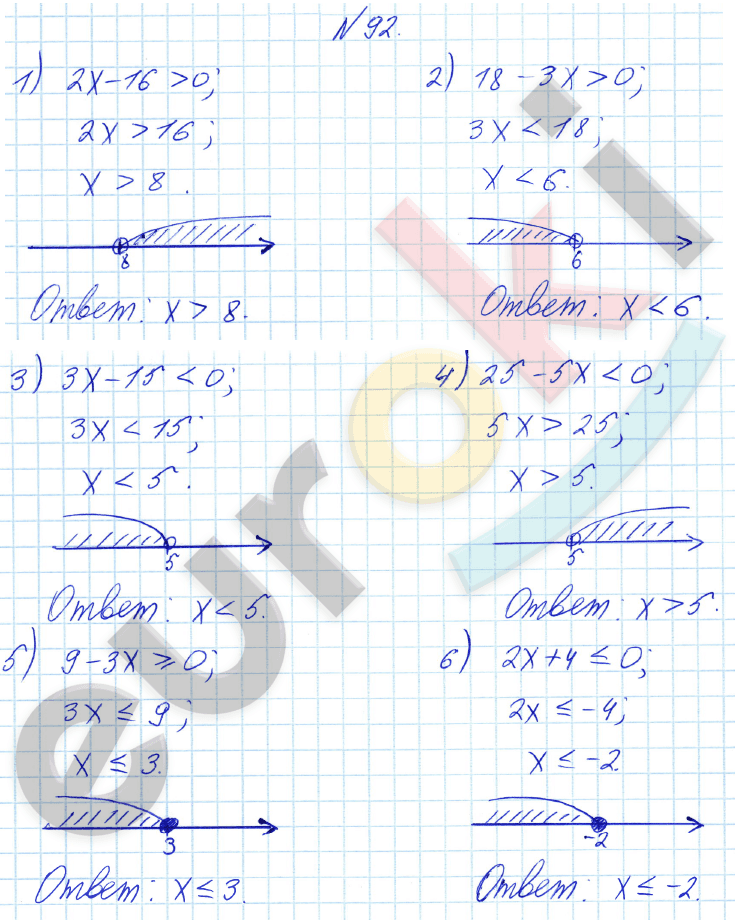 N 92.
1) 2x-16>0;
2x>16;
x>8.
8
Ответ: x>8.
2) 18-3x>0;
3x<18;
x<6.
6
Ответ: x<6.
3) 3x-15<0;
3x<15;
x<5.
5
Ответ: x<5.
4) 25-5x<0;
5x>25;
x>5.
5
Ответ: x>5.
5) 9-3x≥0;
3x≤9;
x≤3.
3
Ответ: x≤3.
6) 2x+4≤0;
2x≤-4;
x≤-2
-2
Ответ: x≤-2.
euroki